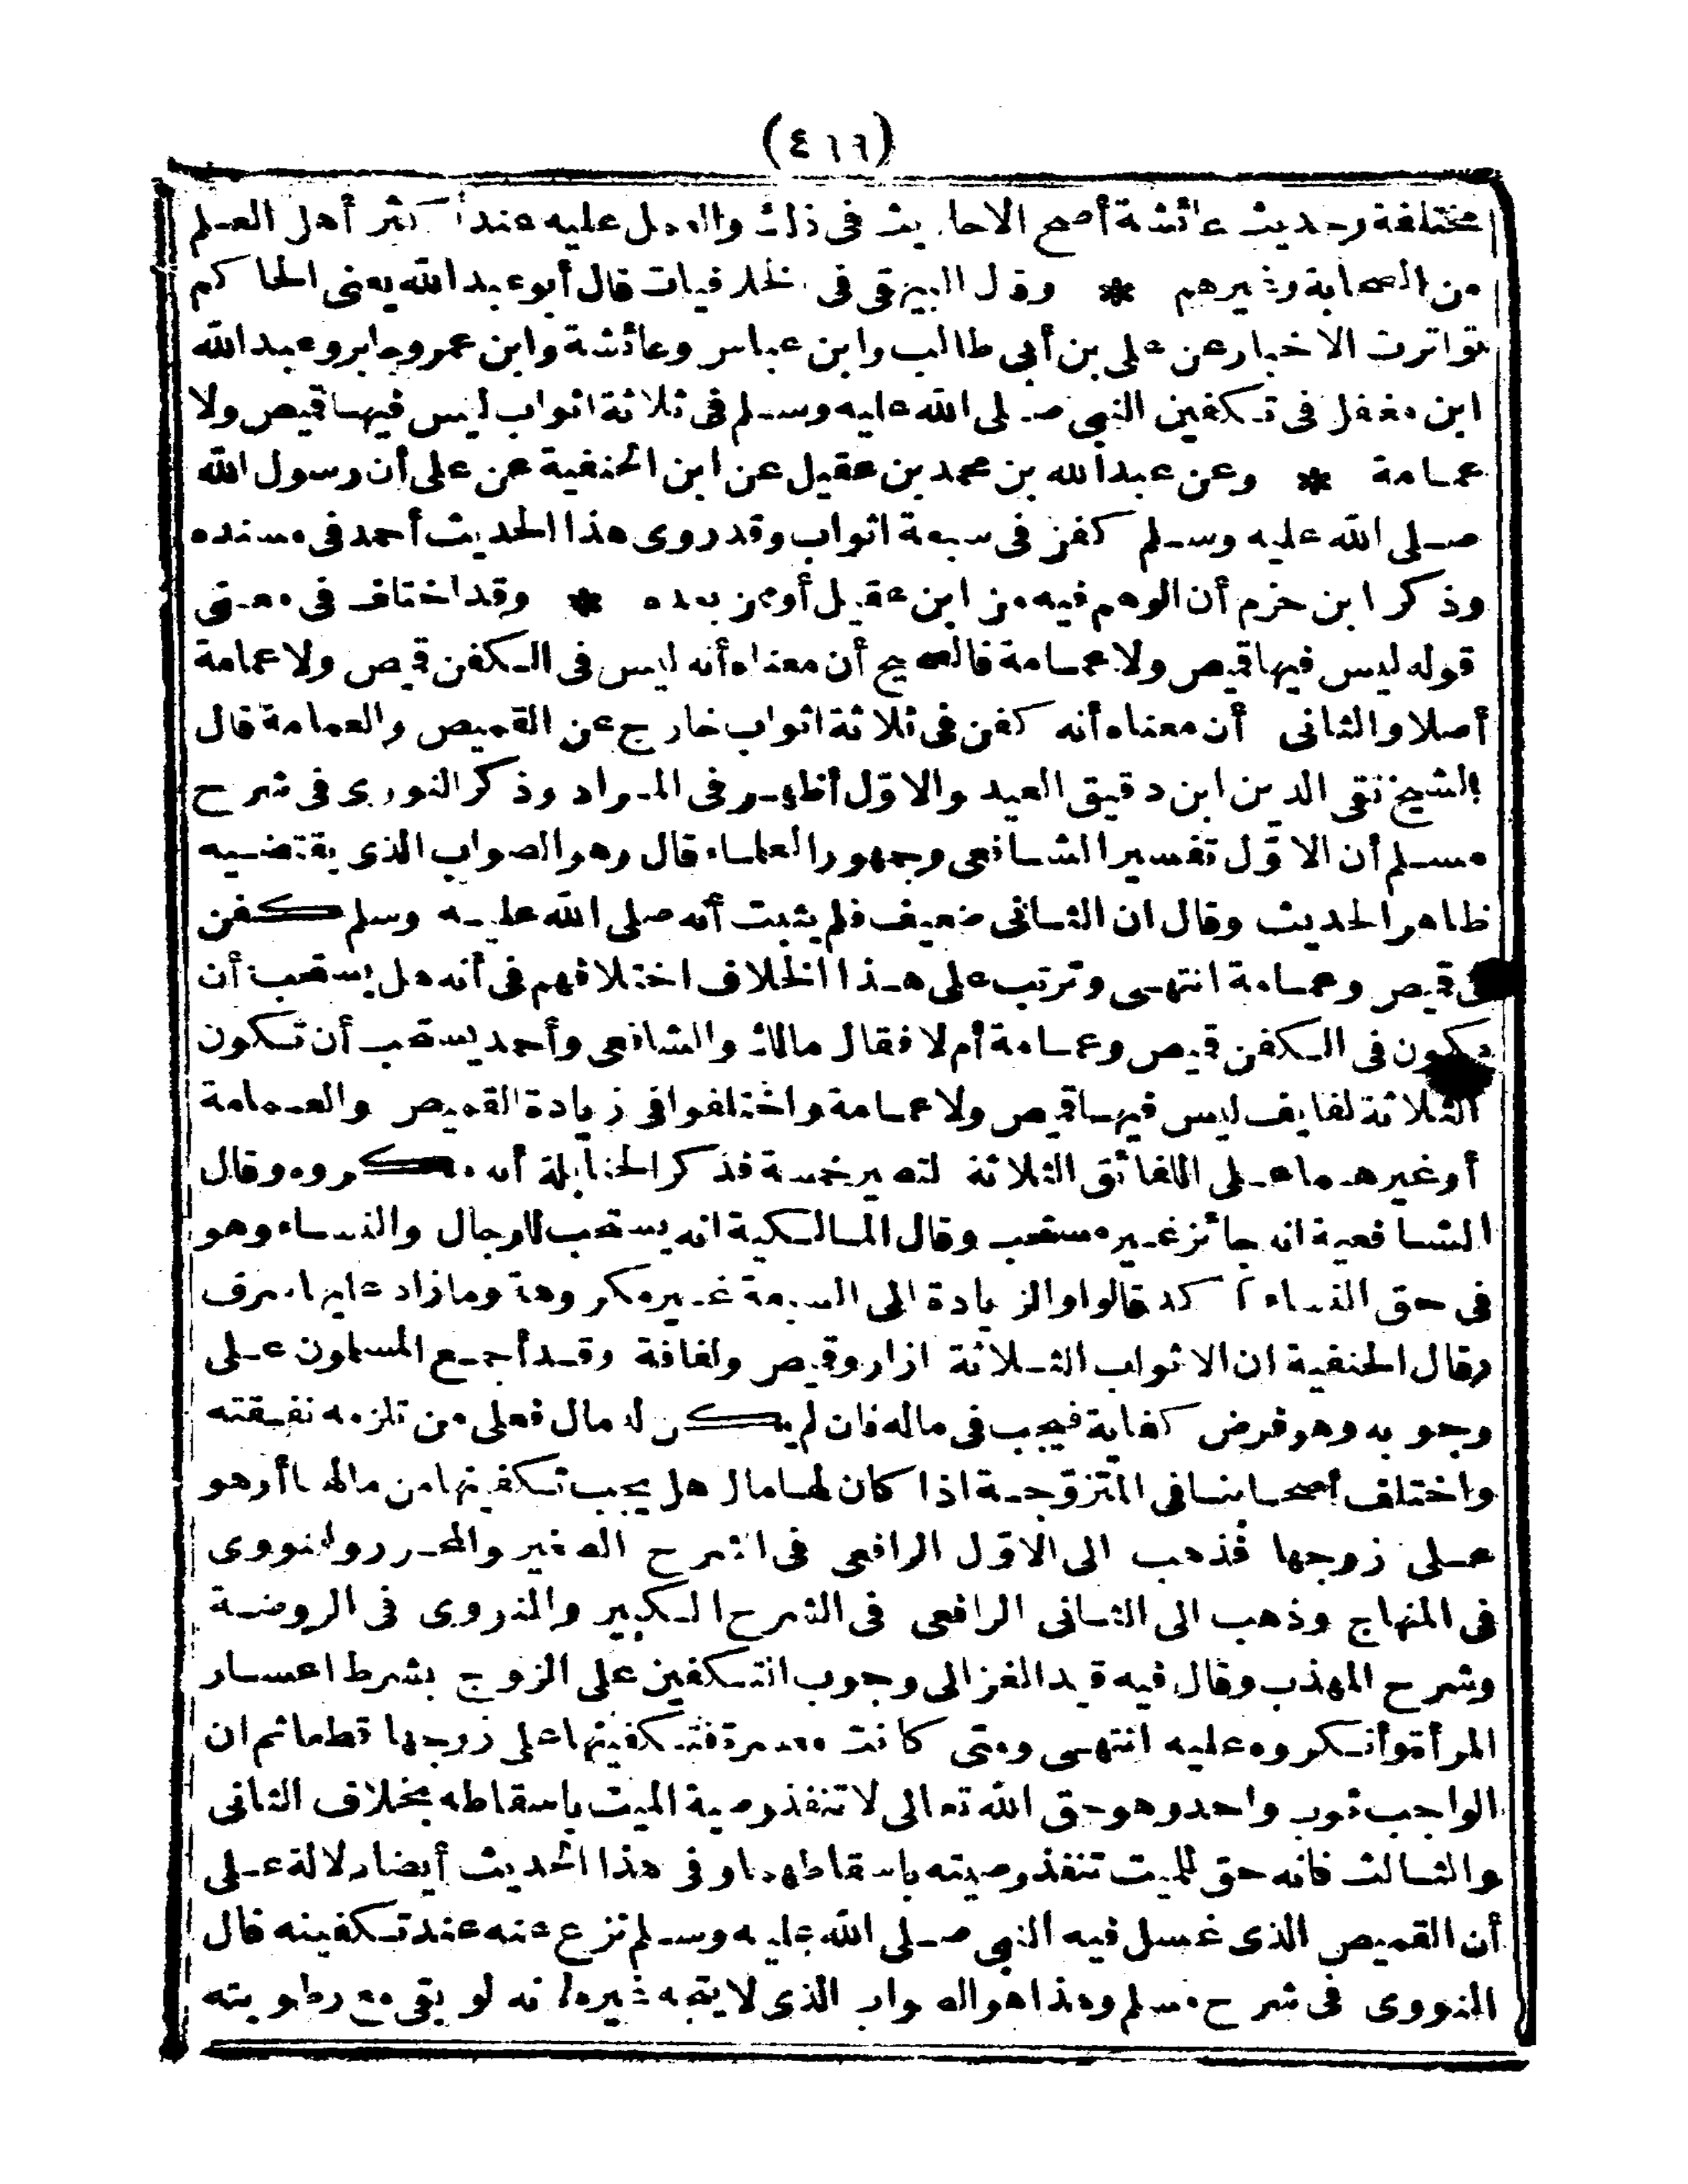 (٤١٦)
مختلفة وحديث عائشة أصح الاحاديث فى ذلك والعمل عليه عند أكثر أهل العلم
من الصحابة وغيرهم * وقال البيهقى فى الخلافيات قال أبو عبد الله يعنى الحاكم
تواترت الاخبار عن على بن أبى طالب وابن عباس وعائشة وابن عمر وجابر وعبد الله
ابن مغفل فى تكفين النبى صلى الله عليه وسلم فى ثلاثة اثواب ليس فيها قميص ولا
عمامة * وعن عبد الله بن محمد بن عقيل عن ابن الحنفية عن على أن رسول الله
صلى الله عليه وسلم كفن فى سبعة اثواب وقد روى هذا الحديث أحمد فى مسنده
وذكر ابن حزم أن الوهم فيه من ابن عقيل أو ممن بعده * وقد اختلف فى معنى
قوله ليس فيها قميص ولا عمامة فالصحيح أن معناه أنه ليس فى الكفن قميص ولا عمامة
أصلا والثانى أن معناه أنه كفن فى ثلاثة اثواب خارج عن القميص والعمامة قال
الشيخ تقى الدين ابن دقيق العيد والاوّل أظهر فى المراد وذكر النووى فى شرح
مسلم أن الاوّل تفسير الشافعى وجمهور العلماء قال وهو الصواب الذى يقتضيه
ظاهر الحديث وقال ان الثانى ضعيف فلم يثبت أنه صلى الله عليه وسلم كفن
فى قميص وعمامة انتهى وترتب على هذا الخلاف اختلافهم فى أنه هل يستحب أن
يكون فى الكفن قميص وعمامة أم لا فقال مالك والشافعى وأحمد يستحب أن تكون
الثلاثة لفايف ليس فيها قميص ولا عمامة واختلفوا فى زيادة القميص والعمامة
أو غيرهما على اللفائق الثلاثة لتصير خمسة فذكر الحنابلة أنه مكروه وقال
الشافعية انه جائز غير مستحب وقال المالكية انه يستحب للرجال والنساء وهو
فى حق النساء آكد قالوا والزيادة الى السبعة غير مكروهة وما زاد عليها سرف
وقال الحنفية ان الاثواب الثلاثة ازار وقميص ولفافة وقد أجمع المسلمون على
وجوبه وهو فرض كفاية فيجب فى ماله فان لم يكن له مال فعلى من تلزمه نفقته
واختلف أصحابنا فى المتزوّجة اذا كان لها مال هل يجب تكفينها من مالها أو هو
على زوجها فذهب الى الاوّل الرافعى فى الشرح الصغير والمحرر والنووى
فى المنهاج وذهب الى الثانى الرافعى فى الشرح الكبير والنووى فى الروضة
وشرح المهذب وقال فيه قيد الغزالى وجوب التكفين على الزوج بشرط اعسار
المرأة وأنكروه عليه انتهى ومتى كانت معسرة فتكفينها على زوجها قطعا ثم ان
الواجب ثوب واحد وهو حق الله تعالى لا تنفذ وصية الميت باسقاطه بخلاف الثانى
والثالث فانه حق للميت تنفذ وصيته باسقاطهما وفى هذا الحديث أيضا دلالة على
أن القميص الذى غسل فيه النبى صلى الله عليه وسلم نزع عنه عند تكفينه قال
النووى فى شرح مسلم وهذا هو الصواب الذى لا يتجه غيره لانه لو بقى مع رطوبته